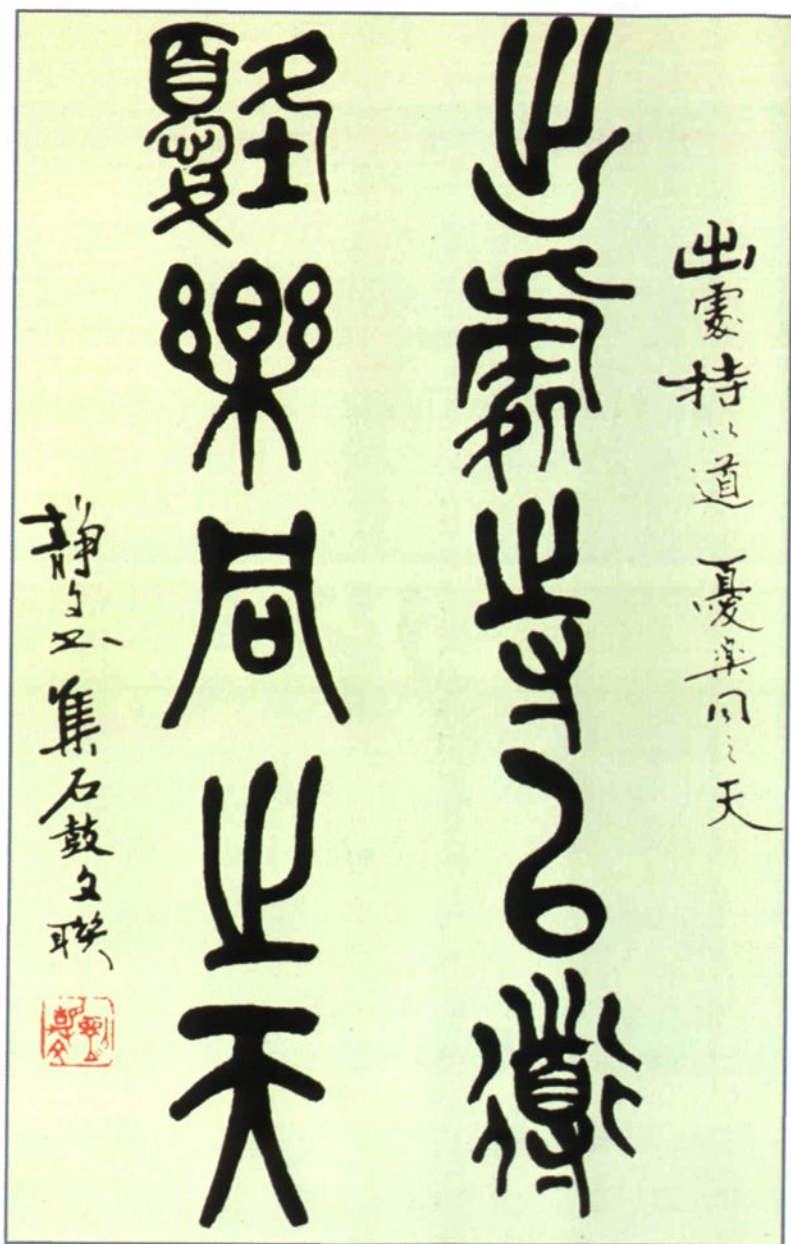 出處持以道 憂樂同之天
出處寺以道
憂樂同之天
靜文書集石鼓文聯